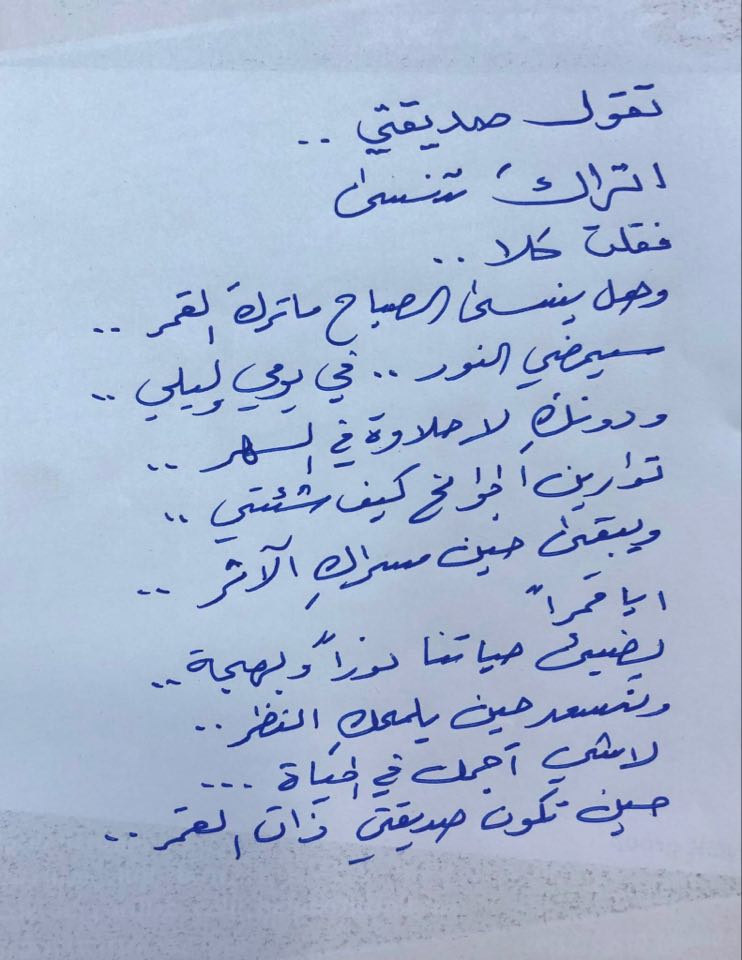 تقول صديقتي ..
اتراكَ تنسى
فقلت كلا ..
وهل ينسى الصباح ماترك القمر ..
سيمضي النور .. في يومي وليلي ..
ودونكِ لا حلاوة في السهر ..
توارين الجوامح كيف شئتي ..
ويبقى حين مسراكِ الآثر ..
ايا قمراً
يضيئ حياتنا نوراً وبهجة ..
وتسعد حين يلمحكِ النظر ..
لاشي آجمل في الحياة ...
حين تكون صديقتي ذات القمر ..